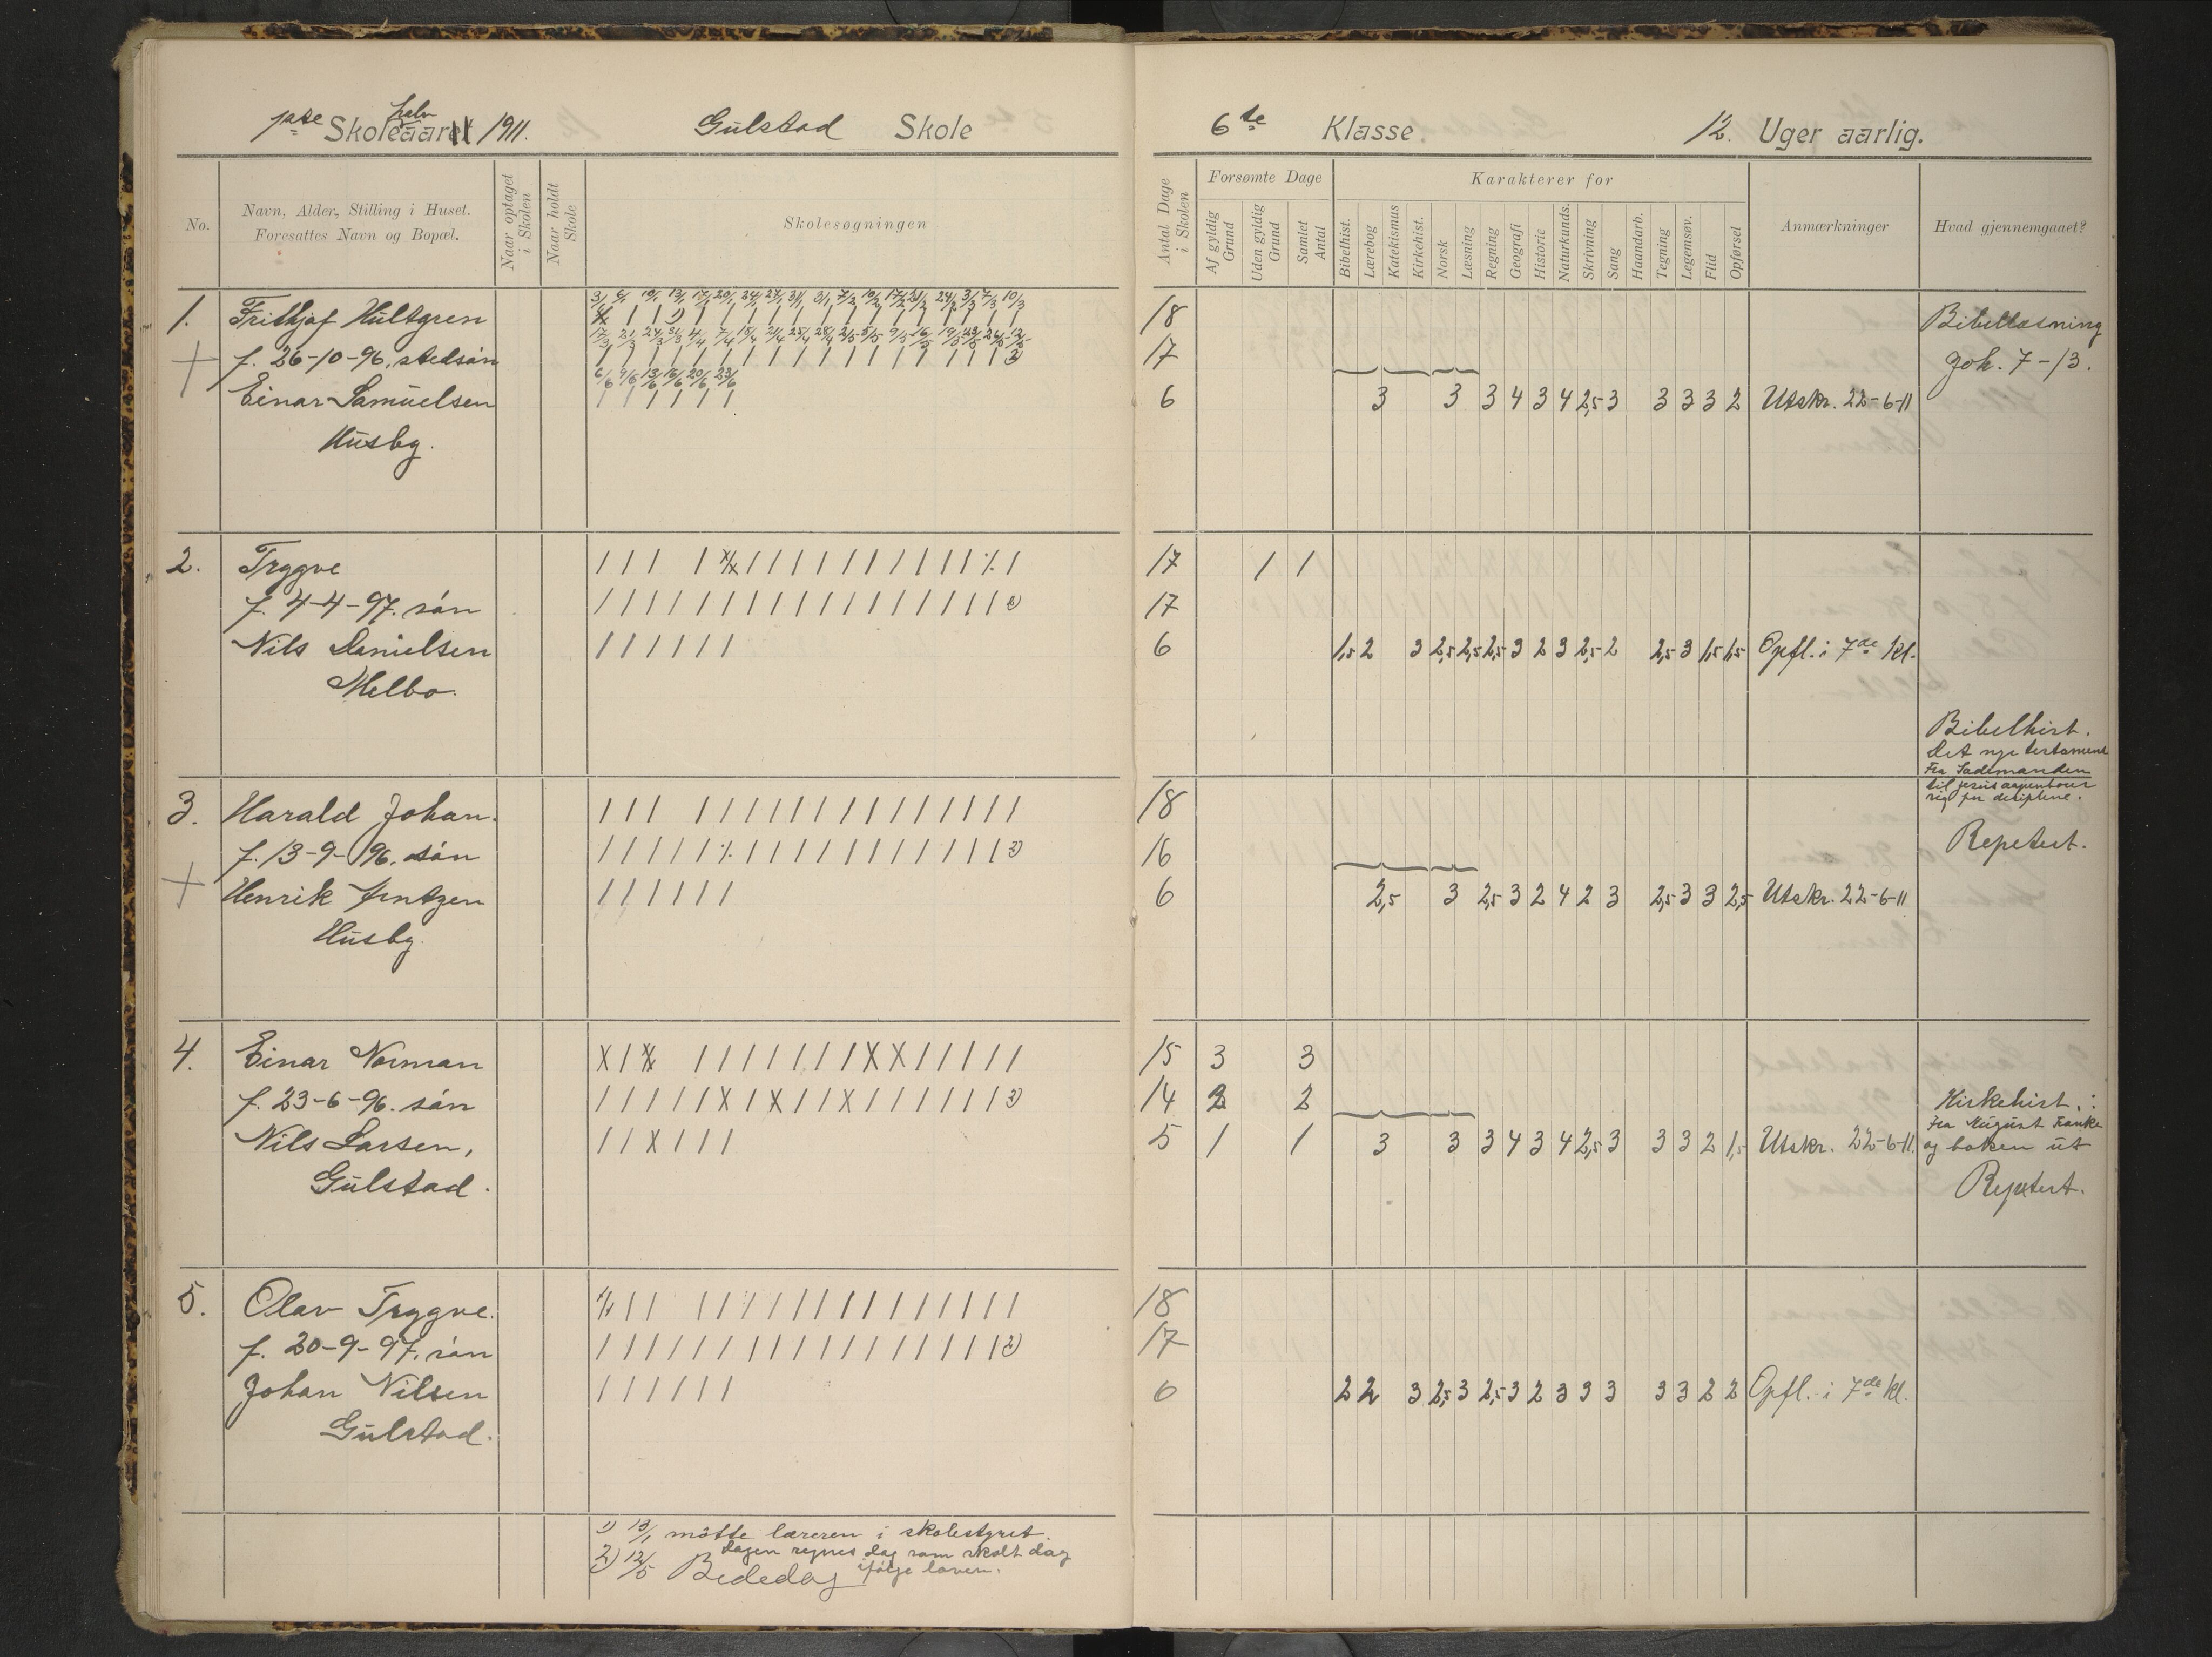 1ste Skoleaaret halv 1911. Gulstad Skole
6te Klasse. 12. Uger aarlig.
No.
Navn, Alder, Stilling i Huset.
Foresattes Navn og Bopæl.
Naar optaget i Skolen
Naar holdt Skole
Skolesøgningen
Antal Dage i Skolen
Forsømte Dage
Af gyldig Grund
Uden gyldig Grund
Samlet Antal
Karakterer for
Bibelhist.
Lærebog
Katekismus
Kirkehist.
Norsk
Læsning
Regning
Geografi
Historie
Naturkunds.
Skrivning
Sang
Haandarb.
Tegning
Legemsøv.
Flid
Opførsel
Anmærkninger
Hvad gjennemgaaet?
1. Frithjof Hultgren
f. 26-10-96. stedsøn
Einar Samuelsen
Husby.
18
17
6 3 3 3 4 3 4 2,5 3 3 3 3 2 Utskr. 22-6-11
Bibellæsning
Joh. 7-13.
2. Trygve
f. 4-4-97. søn
Nils Danielsen
Melbo.
17 1 1
17
6 1,5 2 3 2,5 2,5 2,5 3 2 3 2,5 2 2,5 3 1,5 1,5 Opfl. i 7de kl.
Bibelhist.
Det nye testament
Fra Sædemanden
til Jesus aapenbarer
sig for disiplene.
Repetert.
3. Harald Johan.
f. 13-9-96. søn
Henrik Jentzen
Husby.
18
16
6 2,5 3 2,5 3 2 4 2 3 2,5 3 3 2,5 Utskr. 22-6-11
4. Einar Norman
f. 23-6-96. søn
Nils Larsen,
Gulstad.
15 3 3
14 2 2
5 1 1 3 3 3 4 3 4 2,5 3 3 3 2 1,5 Utskr. 22-6-11.
Kirkehist.:
Fra August Franke
og boken ut
Repetert.
5. Olav Trygve.
f. 20-9-97. søn
Johan Nilsen
Gulstad.
18
17
6 2 2 3 2,5 3 2,5 3 2 3 3 3 3 3 2 2 Opfl. i 7de kl.
1) 13/1 møtte læreren i skolestyret.
Dagen regnes dog som skolt dag
ifølge loven.
2) 12/5 Bededag